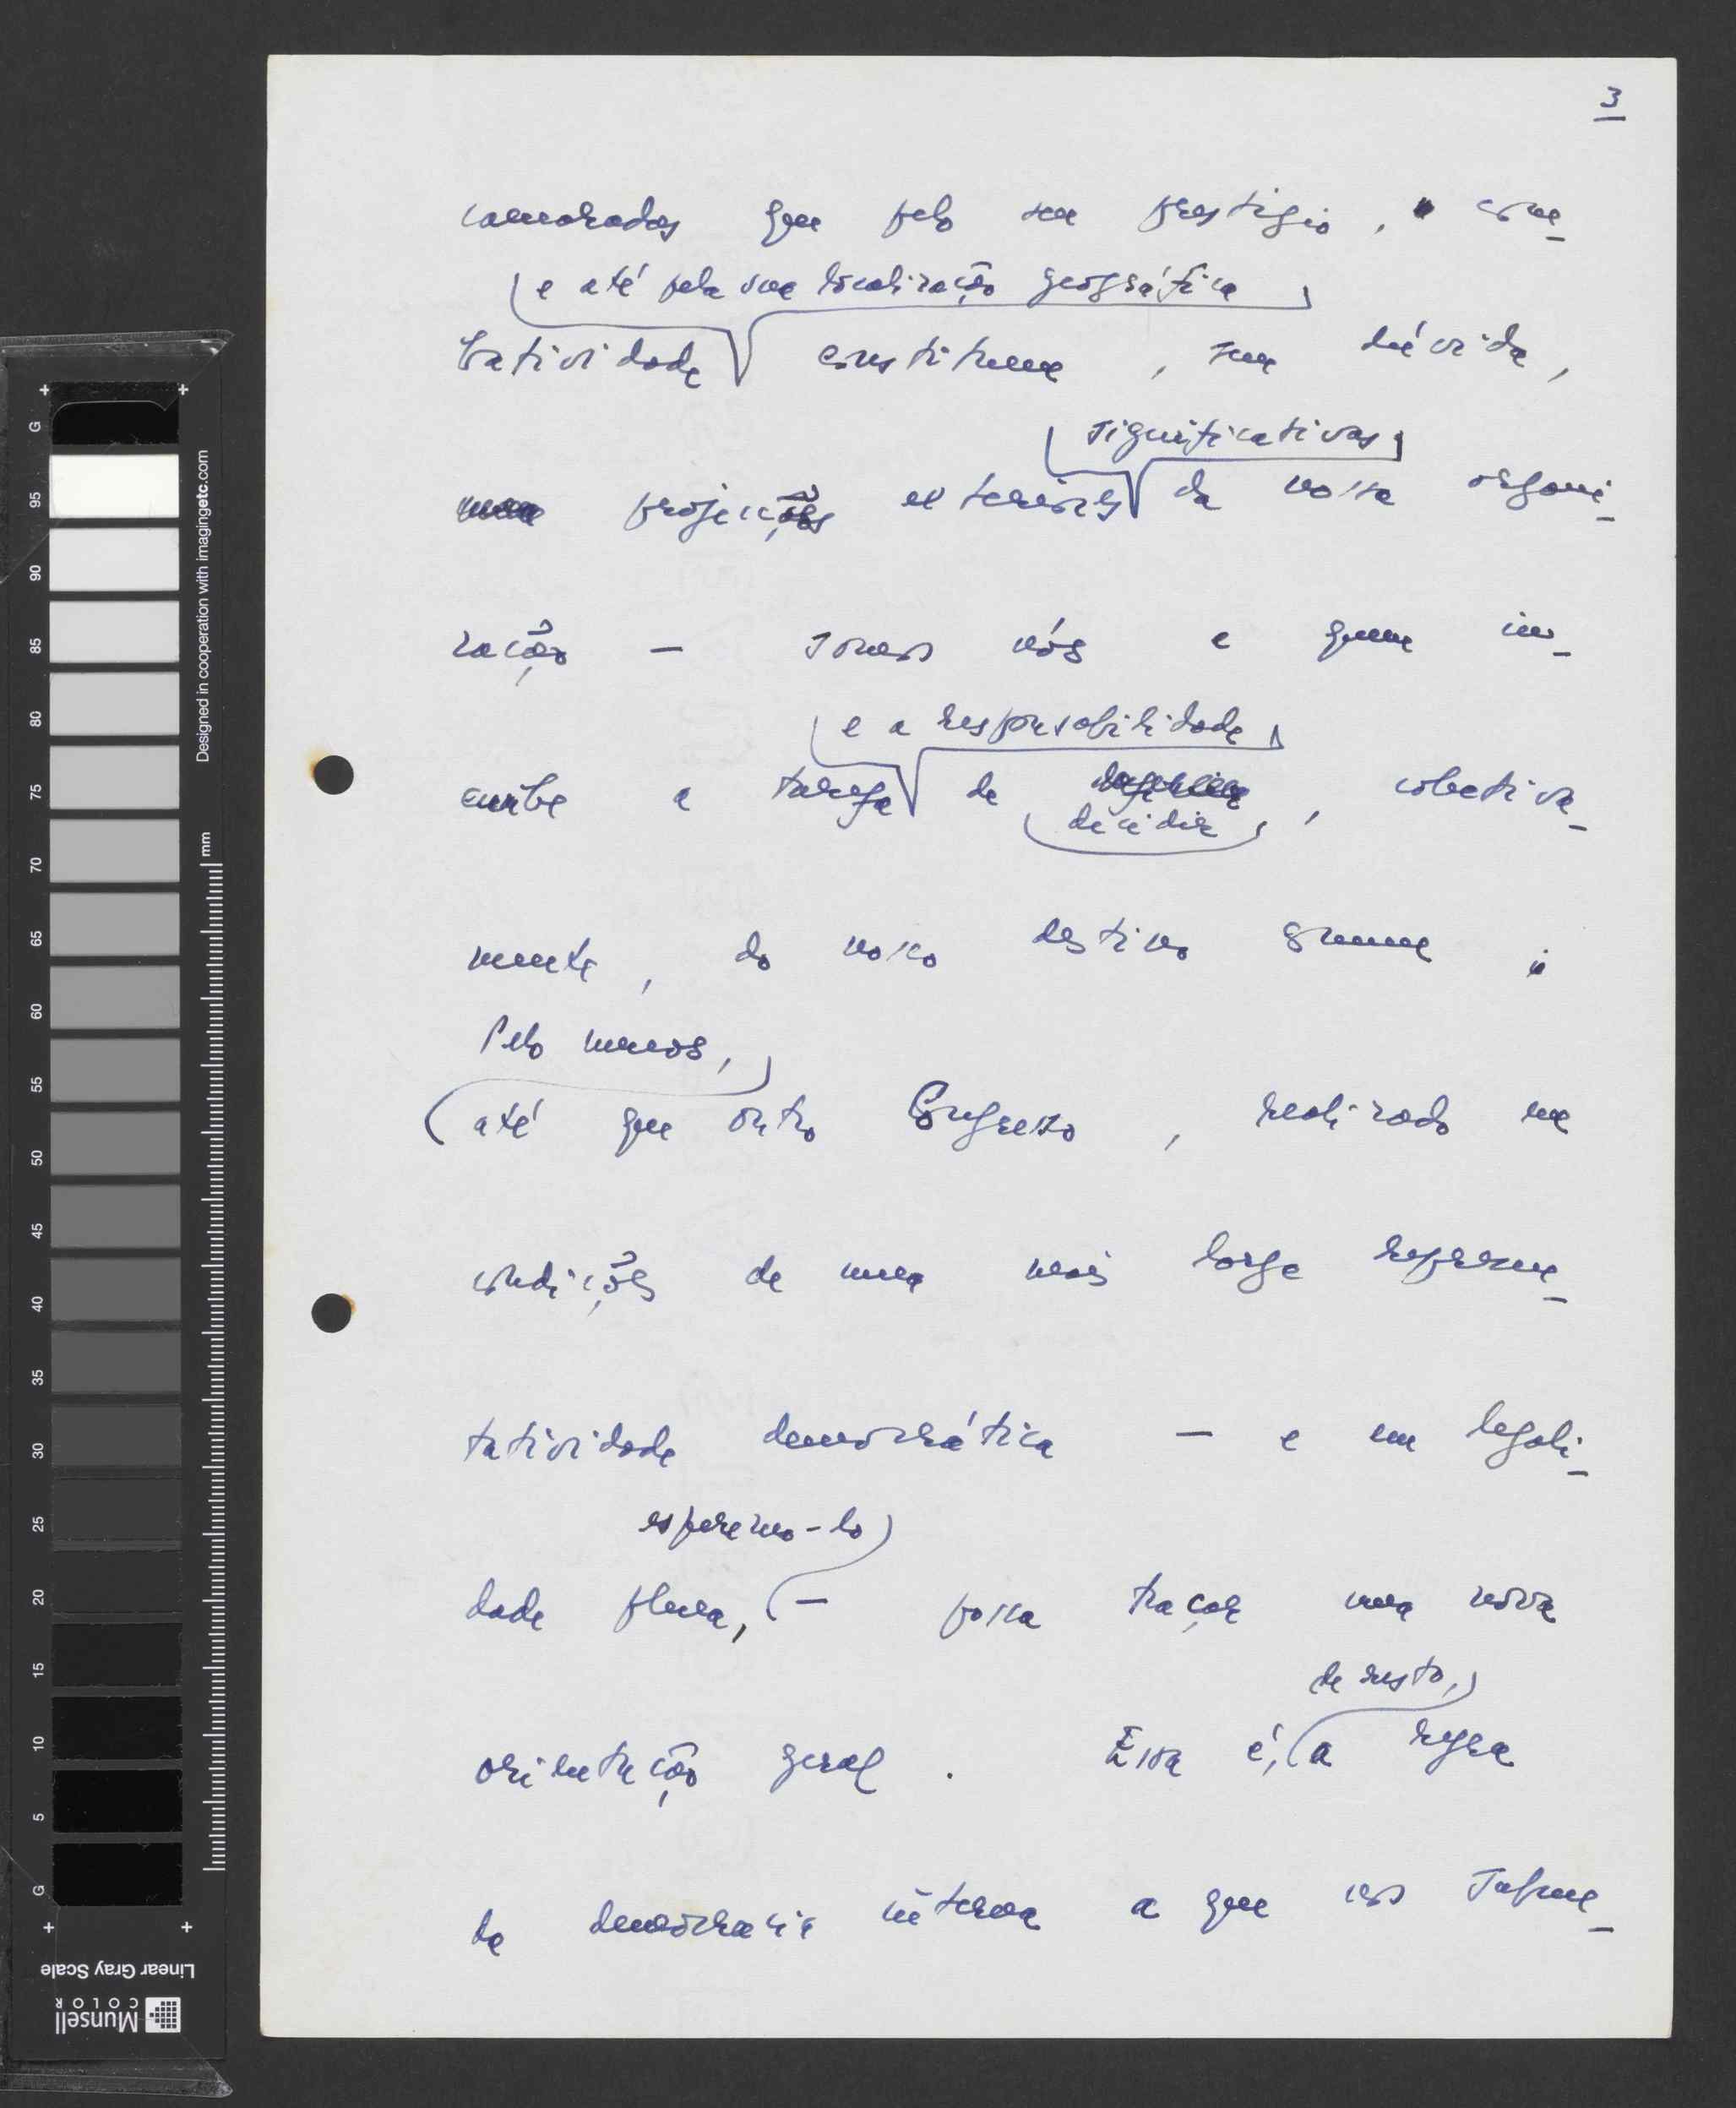 3
camaradas que pelo seu prestígio, com-
e até pela sua localização geográfica
batividade constituem, sem dúvida,
significativas
projecções exteriores da nossa organi-
zação — somos nós a quem in-
e a responsabilidade
cumbe a tarefa de , colectiva-
decidir
mente, do nosso destino comum
Pelo menos,
até que outro Congresso, realizado em
condições de uma mais larga represen-
tatividade democrática — e em legali-
esperemo-lo
dade plena, — possa traçar uma nova
de resto,
orientação geral. Essa é, a regra
da democracia interna a que nos subme-
Designed in cooperation with imagingetc.com
mm
G 95 90 85 80 75 70 65 60 55 50 45 40 35 30 25 20 15 10 5 G
Linear Gray Scale
Munsell
COLOR